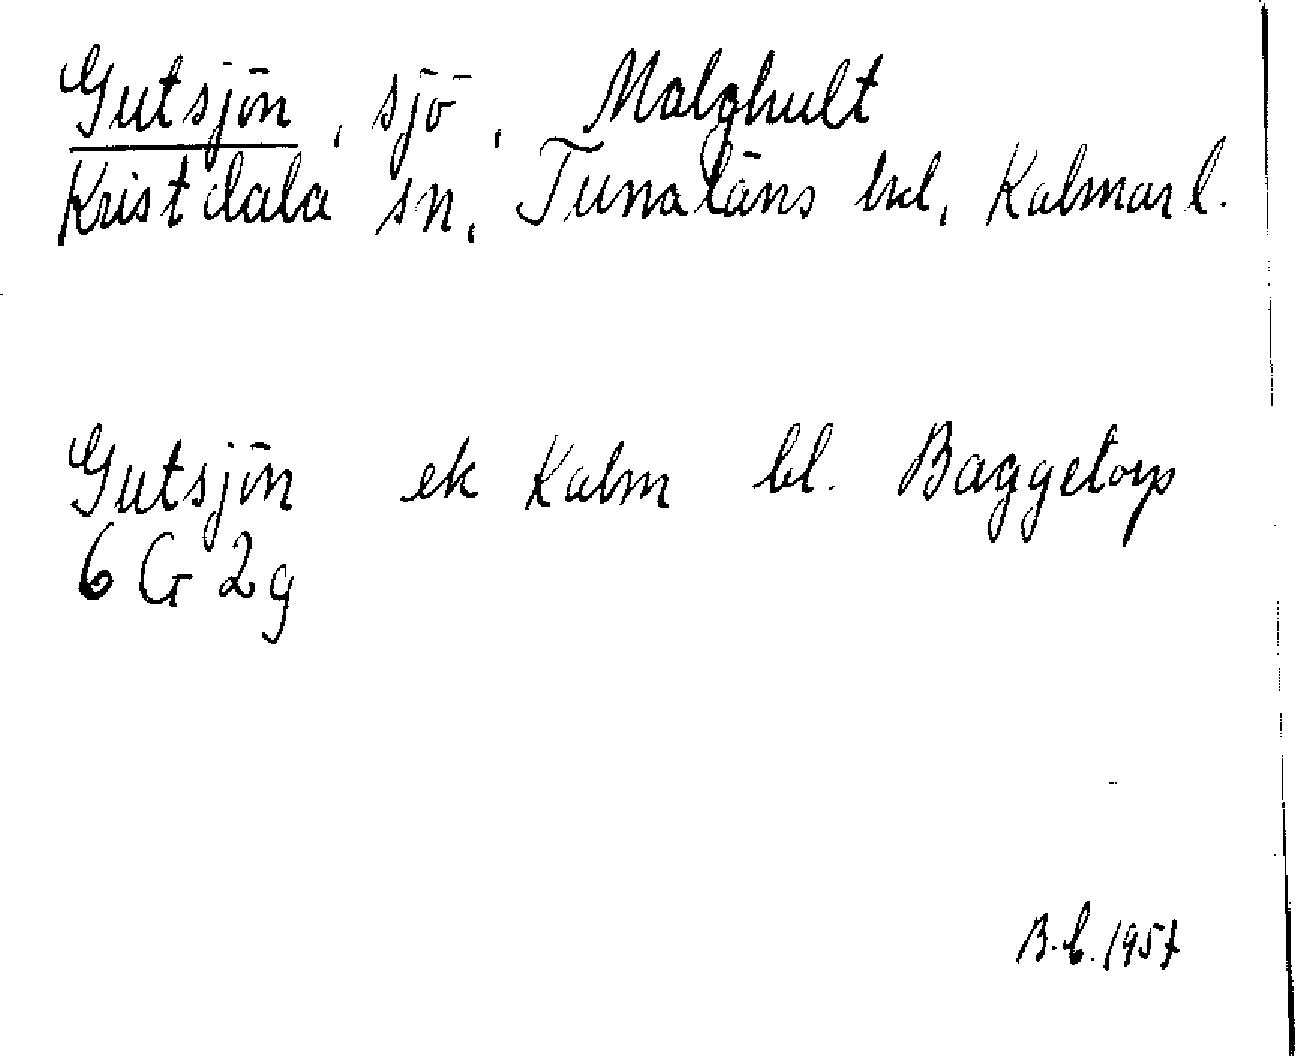 Gutsjön, sjö, Malghult
Kristdala sn, Tunaläns hd, Kalmar l.
Gutsjön ek Kalm bl. Baggetorp
6 G 2g
B.b. 1957